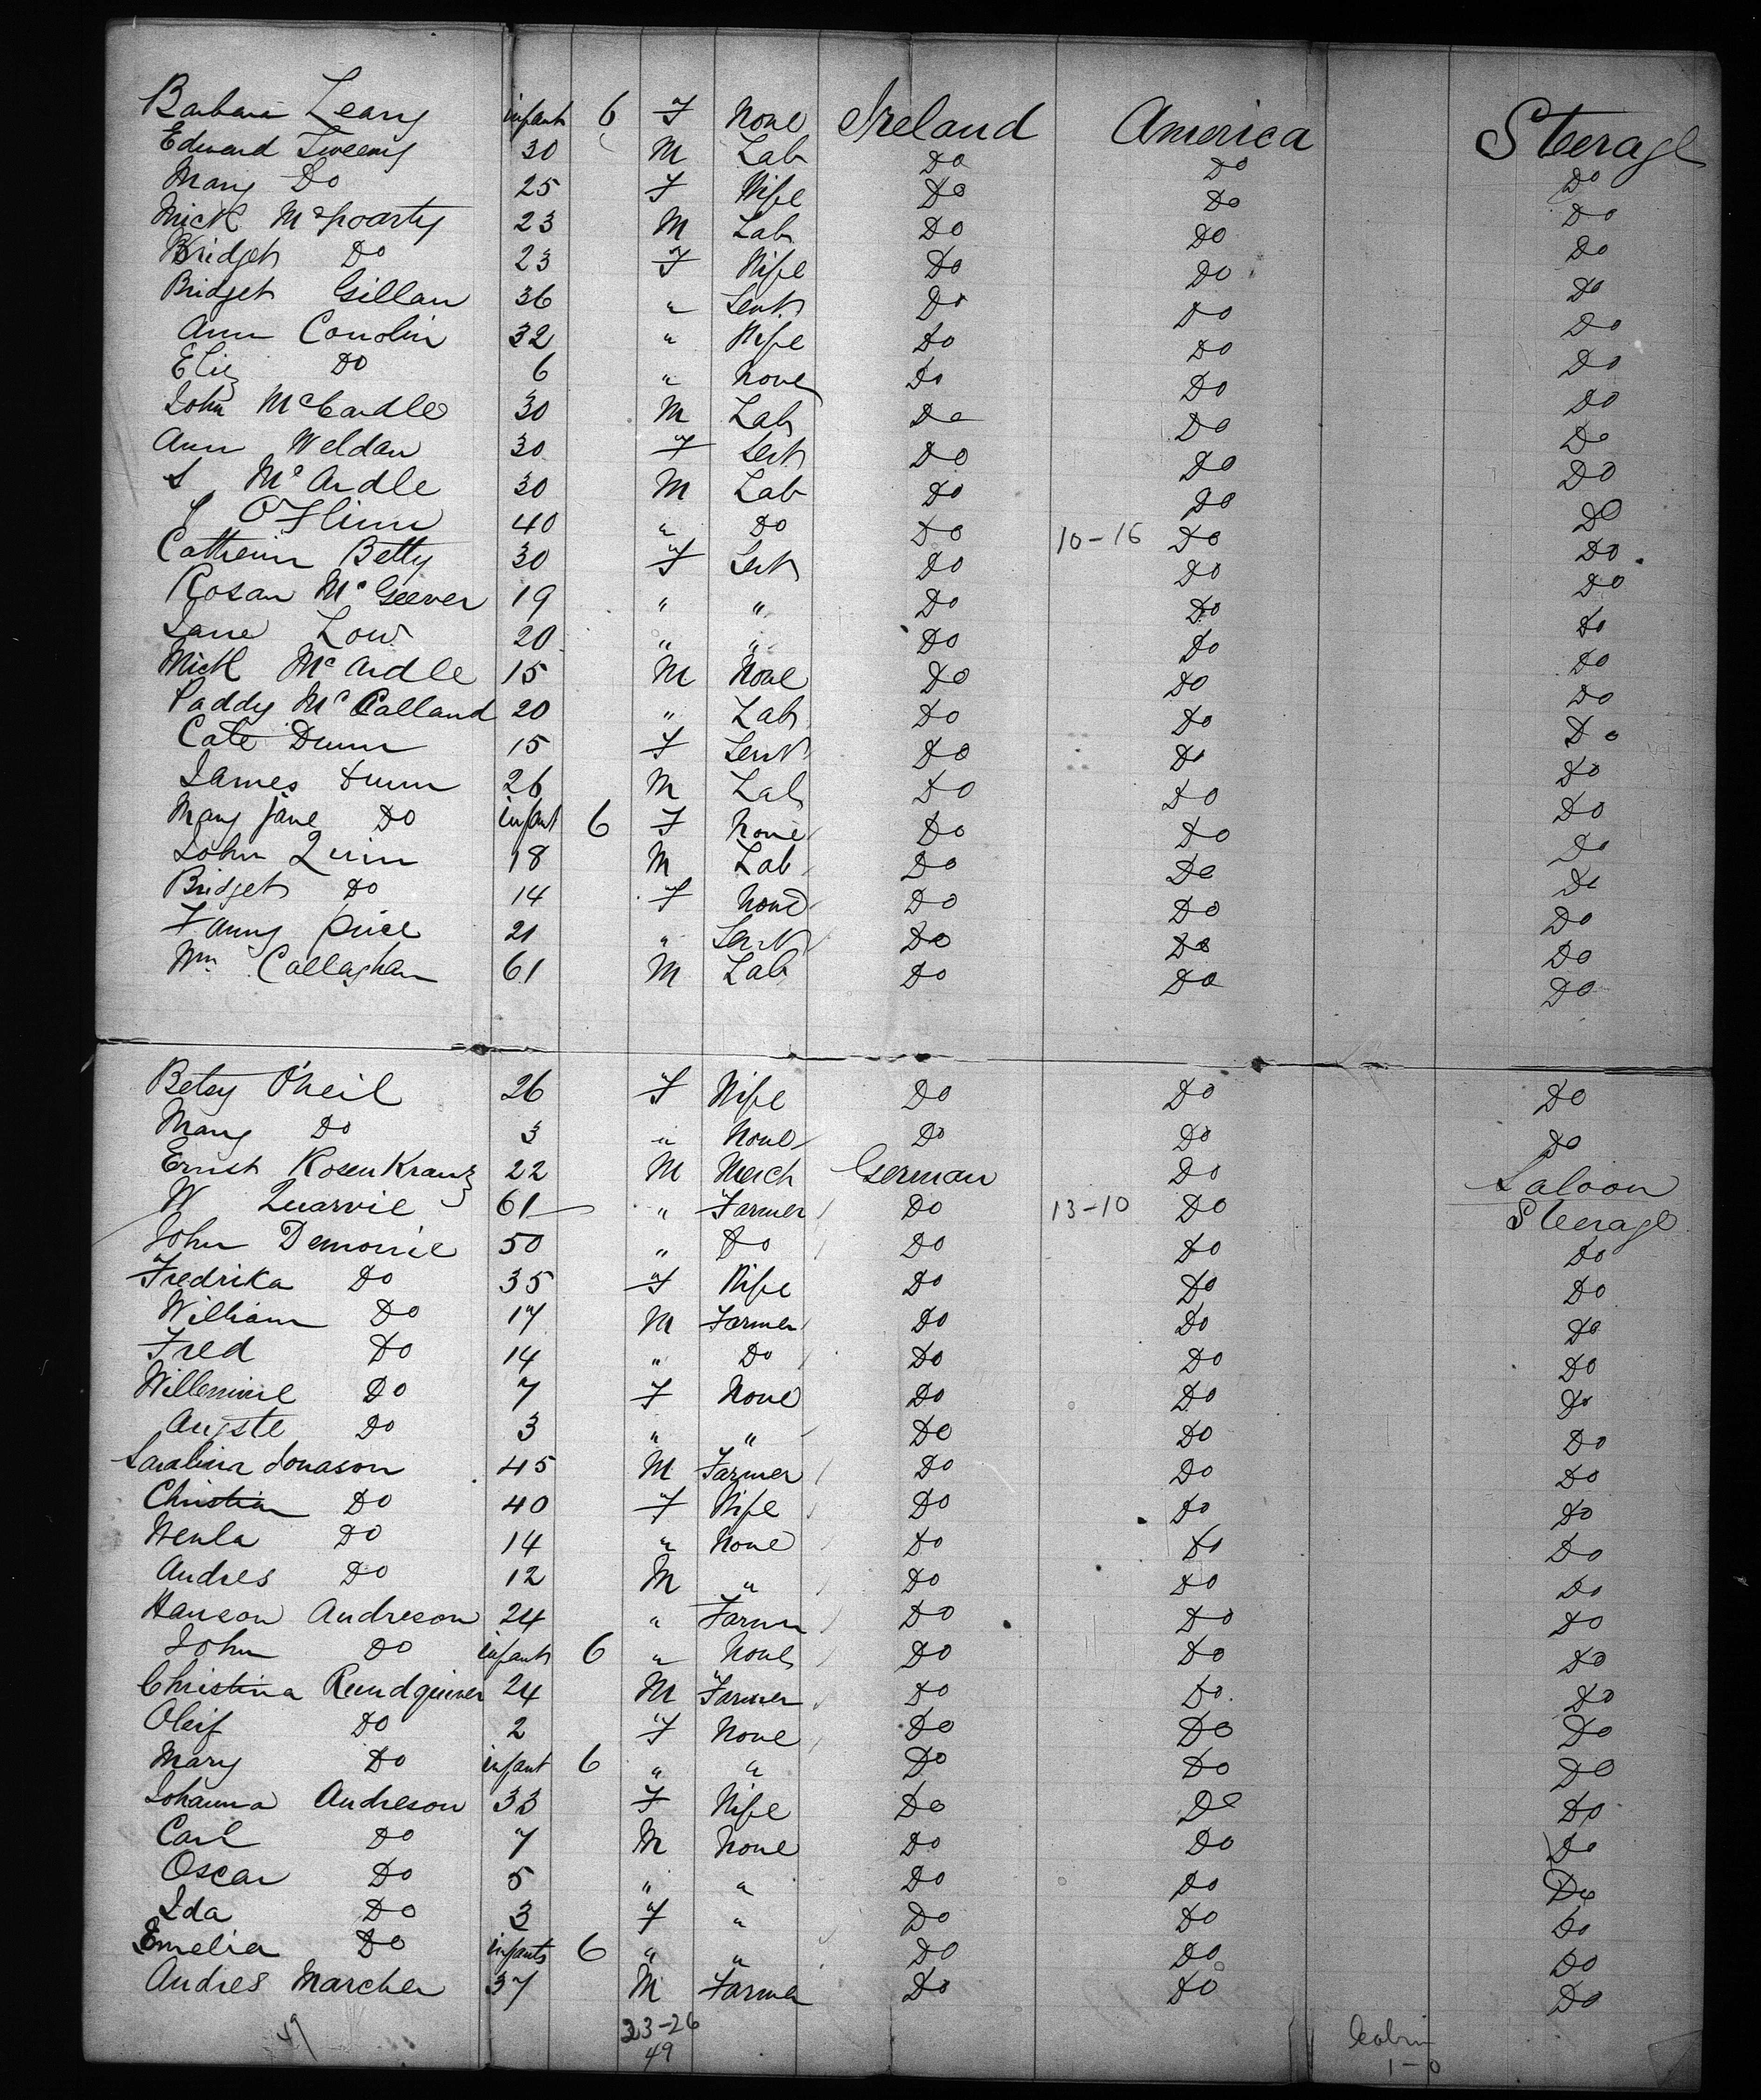 Barbara Leary infant 6 F None Ireland America Steerage
Edward Tweeny 30 M Lab Do Do Do
Mary Do 25 F Wife Do Do Do
Mick McGoarty 23 M Lab Do Do Do
Bridget Do 23 F Wife Do Do Do
Bridget Gillan 36 " Servt. Do Do Do
Ann Conolin 32 " Wife Do Do Do
Eliz Do 6 " None Do Do Do
John McCardle 30 M Lab Do Do Do
Ann Weldan 30 F Sert Do Do Do
McArdle 30 M Lab Do Do Do
O'Flinn 40 " Do Do 10-16 Do Do
Catherin Betty 30 F Sert Do Do Do
Rosan McGeever 19 " " Do Do Do
Jane Low 20 " " Do Do Do
Mick McArdle 15 M None Do Do Do
Paddy McCalland 20 " Lab Do Do Do
Cate Dunn 15 F Servt Do Do Do
James Dunn 26 M Lab Do Do Do
Mary jane Do infant 6 F None Do Do Do
John Quin 18 M Lab Do Do Do
Bridget Do 14 F None Do Do Do
Fanny Price 21 " Servt Do Do Do
Wm Callaghan 61 M Lab Do Do Do
Betsy O'Neil 26 F Wife Do Do Do
Mary Do 3 " None Do Do Do
Ernst RosenKranz 22 M Merch German Do Saloon
W Quarvie 61 " Farmer Do 13-10 Do Steerage
John Demonie 50 " Do Do Do Do
Fredrika Do 35 F Wife Do Do Do
William Do 17 M Farmer Do Do Do
Fred Do 14 " Do Do Do Do
Willemine Do 7 F None Do Do Do
Augste Do 3 " " Do Do Do
Jonason 45 M Farmer Do Do Do
Christian Do 40 F Wife Do Do Do
Do 14 " None Do Do Do
Andres Do 12 M " Do Do Do
Hanson Andreson 24 " Farmer Do Do Do
John Do infant 6 " None Do Do Do
Christina Rundquiner 24 M Farmer Do Do Do
Oleif Do 2 F None Do Do Do
Mary Do infant 6 " " Do Do Do
Johanna Andreson 33 F Wife Do Do Do
Carl Do 7 M None Do Do Do
Oscar Do 5 " " Do Do Do
Ida Do 3 F " Do Do Do
Emelia Do infants 6 " " Do Do Do
Andres Marcher 37 M Farmer Do Do Do
49 23-26 Cabin
49 1-0